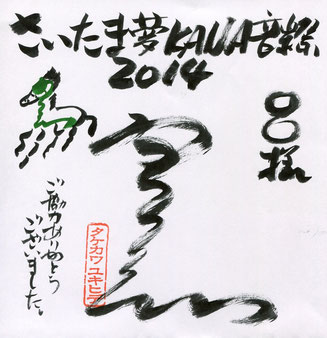 さいたま夢KANA音祭
2014
○○様
ご協力ありがとう
ございました。
タケカワ ユキヒデ